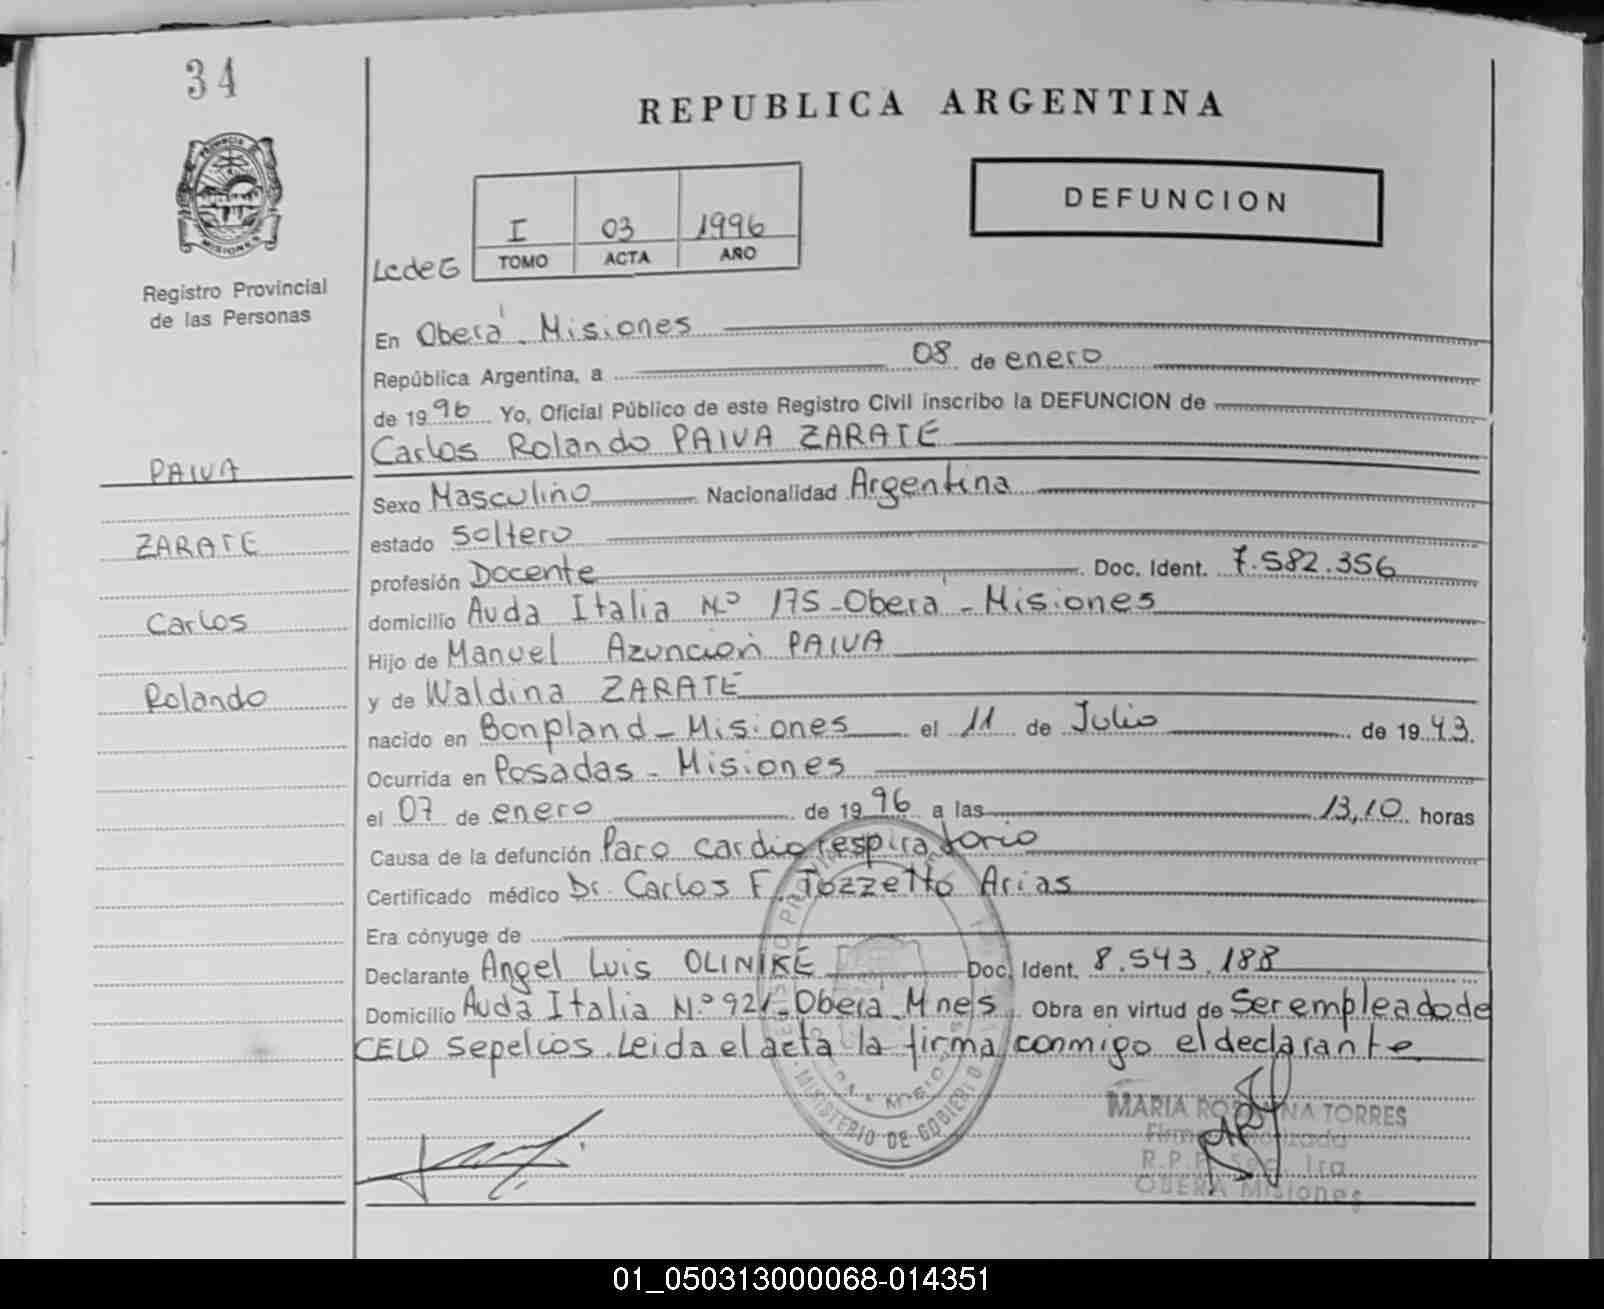 34
REPUBLICA ARGENTINA
DEFUNCION
PROVINCIA DE
MISIONES
Registro Provincial
de las Personas
LcdeG
I 03 1996
TOMO ACTA AÑO
En Oberá - Misiones
República Argentina, a 08 de enero
de 1996 Yo, Oficial Público de este Registro Civil inscribo la DEFUNCION de
Carlos Rolando PAIVA ZARATE
PAIVA
ZARATE
Carlos
Rolando
Sexo Masculino Nacionalidad Argentina
estado Soltero
profesión Docente Doc. Ident. 7.582.356
domicilio Avda Italia Nº 175 - Oberá - Misiones
Hijo de Manuel Azunción PAIVA
y de Waldina ZARATE
nacido en Bonpland - Misiones el 11 de Julio de 1943.
Ocurrida en Posadas - Misiones
el 07 de enero de 1996 a las 13,10 horas
Causa de la defunción Paro cardiorespiratorio
Certificado médico Dr. Carlos F. Tozzetto Arias
Era cónyuge de
Declarante Angel Luis OLINIKE Doc. Ident. 8.543.188
Domicilio Avda Italia Nº 921 - Obera - Mnes Obra en virtud de Ser empleado de
CELO Sepelios. Leida el acta la firma conmigo el declarante
MINISTERIO DE GOBIERNO
MARIA ROS NA TORRES
R.P.P.
OBERA Misiones
01_050313000068-014351